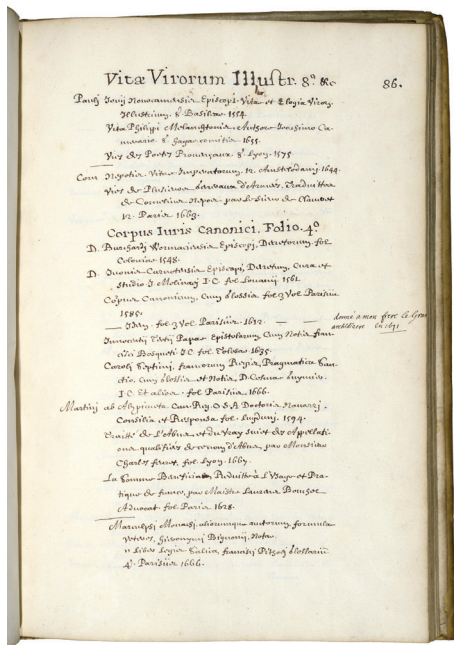 Vitæ Virorum Illustr. 8º. &c
86.
Pauli Iovij Novocomensis Episcopi. Vitæ et Elogia Viror.
Illustrium. 8º Basileæ 1554.
Vita Philippi Melanchtonis. Authore Ioachimo Ca-
merario 8º Hagæ comitis 1655.
Vies des Poetes Provençaux 8º Lyon. 1575
Corn. Nepotis Vitæ Imperatorum. 12. Amstelodami. 1644.
Vies de Plusieurs Traduittes
de Cornelius Nepos. par le Sieur de Claveret
12. Paris 1663.
Corpus Iuris Canonici. Folio. 4º
D. Burchardi Wormaciensis Episcopi, Decretorum fol.
Coloniæ 1548.
D. Ivonis Carnotensis Episcopi, Decretum, Cura et
studio I. Molinæi I.C. fol. Louanij 1561
Corpus Canonicum, Cum Glossis fol. 3 Vol. Parisiis
1585.
Idem. fol. 3 Vol. Parisiis. 1612.
donné à mon frere le
en 1691
Innocentij Tertij Papæ Epistolarum Cum Notis Fran-
cisci Bosqueti I.C. fol. Tolosæ 1635.
Caroli Septimi, francorum Regis, Pragmatica San-
ctio. Cum glossis et Notis D. Cosmæ Guymier.
I.C. Et alior. fol. Parisiis. 1666.
Martini ab Azpilcueta Can. Reg. O.S.A. Doctoris Navarri.
Consilia et Responsa fol. Lugduni. 1594.
Traitté de L'Abus et du vray suiet des Appellati-
ons qualifiées de ce nom d'Abus, par Monsieur
Charles fevret, fol. Lyon. 1667.
La Somme Beneficial, Reduitte à L'Usage et Pra-
tique de france, par Maistre Laurens Bouchel
Advocat. fol. Paris 1628.
Marculfi Monachi, aliorumque autorum formulæ
veteres, Hieronymi Bignonij. Notæ
Liber Legis Salicæ, francisci Pithœi Glossarium
4º. Parisiis 1666.